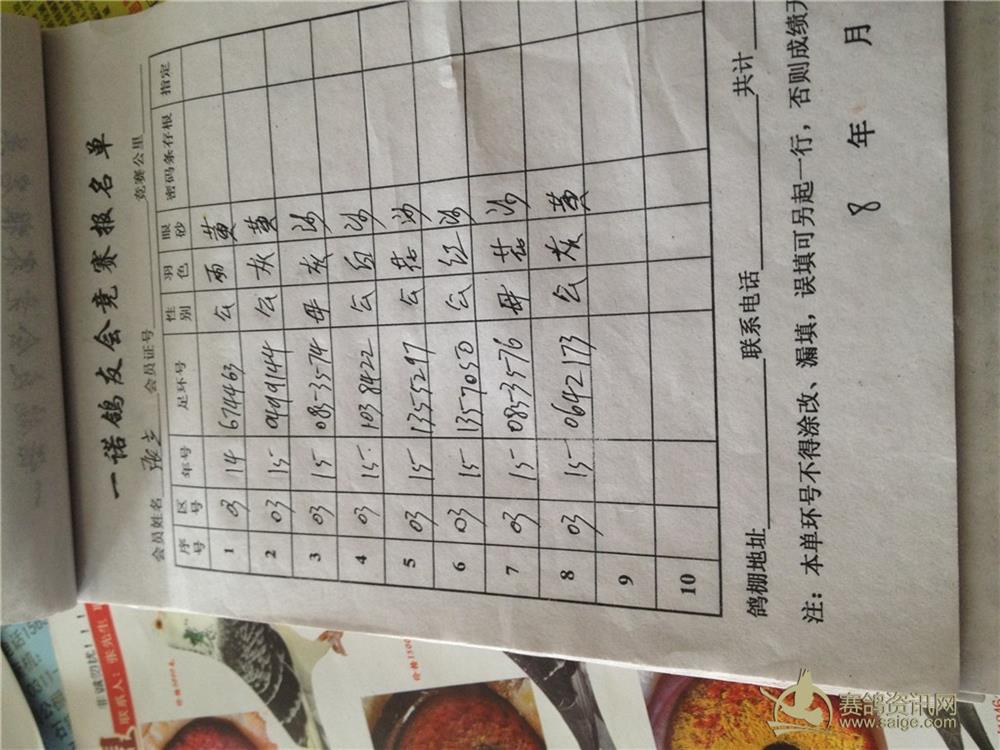 一诺鸽友会竞赛报名单
会员姓名 张 会员证号 竞赛公里
序号 区号 年号 足环号 性别 羽色 眼砂 密码条存根 指定
1 03 14 674463 公 雨 黄
2 03 15 0499144 公 灰 黄
3 03 15 0853574 母 灰 沙
4 03 15 1038422 公 白 沙
5 03 15 1355297 公 花 沙
6 03 15 1357050 公 红 沙
7 03 15 0853576 母 花 沙
8 03 15 0642173 公 灰 黄
9
10
鸽棚地址 联系电话 共计
注：本单环号不得涂改、漏填，误填可另起一行，否则成绩无
8 年 月
非诚勿扰！！！
联系人：张先生
赛鸽资讯网
www.saige.com